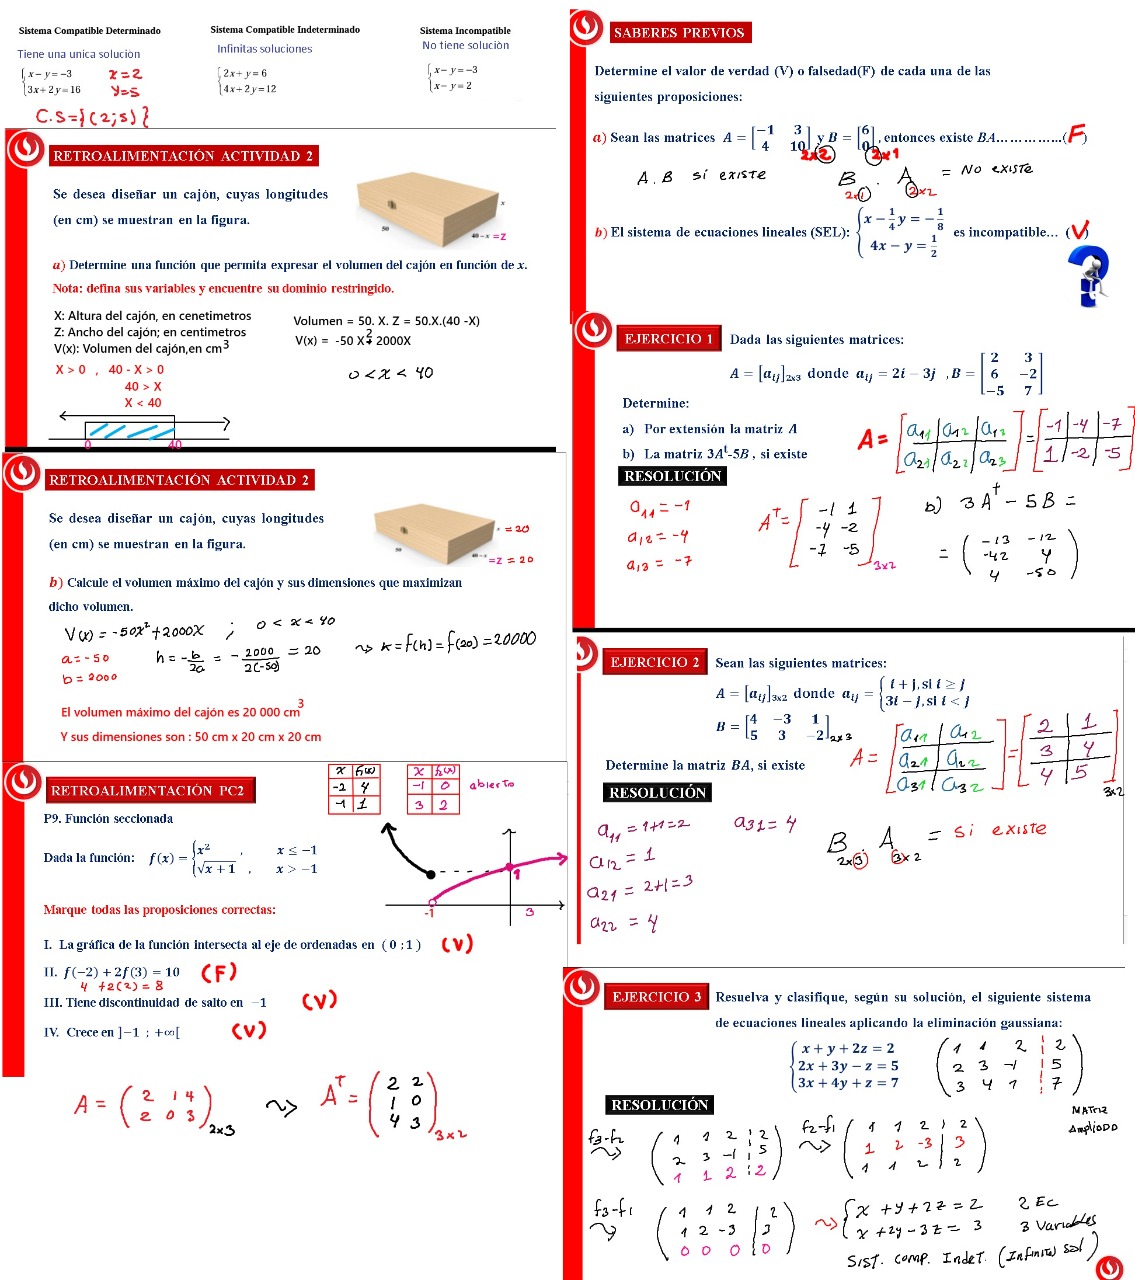 Sistema Compatible Determinado
Tiene una unica solución
x − y = −3
3x + 2y = 16
x = 2
y = 5
C.S = {(2;5)}
Sistema Compatible Indeterminado
Infinitas soluciones
2x + y = 6
4x + 2y = 12
Sistema Incompatible
No tiene solución
x − y = −3
x − y = 2
RETROALIMENTACIÓN ACTIVIDAD 2
Se desea diseñar un cajón, cuyas longitudes
(en cm) se muestran en la figura.
x
50
40 − x = Z
a) Determine una función que permita expresar el volumen del cajón en función de x.
Nota: defina sus variables y encuentre su dominio restringido.
X: Altura del cajón, en cenetimetros
Z: Ancho del cajón; en centimetros
V(x): Volumen del cajón,en cm3
Volumen = 50. X. Z = 50.X.(40 -X)
V(x) = -50 X2 + 2000X
X > 0 , 40 - X > 0
40 > X
X < 40
0 < x < 40
0 40
RETROALIMENTACIÓN ACTIVIDAD 2
Se desea diseñar un cajón, cuyas longitudes
(en cm) se muestran en la figura.
x = 20
50
40 − x = Z = 20
b) Calcule el volumen máximo del cajón y sus dimensiones que maximizan
dicho volumen.
V(x) = -50x² + 2000x ; 0 < x < 40
a = -50
b = 2000
h = -b/2a = -2000/2(-50) = 20
⇝ k = f(h) = f(20) = 20000
El volumen máximo del cajón es 20 000 cm3
Y sus dimensiones son : 50 cm x 20 cm x 20 cm
RETROALIMENTACIÓN PC2
x f(x)
-2 4
-1 1
x f(x)
-1 0
3 2
abierto
P9. Función seccionada
Dada la función: f(x) = { x² , x ≤ −1
√x + 1 , x > −1
1
-1 3
Marque todas las proposiciones correctas:
I. La gráfica de la función intersecta al eje de ordenadas en ( 0 ; 1 ) (V)
II. f(−2) + 2f(3) = 10 (F)
4 + 2(2) = 8
III. Tiene discontinuidad de salto en −1 (V)
IV. Crece en ]−1 ; +∞[ (V)
A = ( 2 1 4
2 0 3 ) 2x3
⇝ Aᵗ = ( 2 2
1 0
4 3 ) 3x2
SABERES PREVIOS
Determine el valor de verdad (V) o falsedad(F) de cada una de las
siguientes proposiciones:
a) Sean las matrices A = [−1 3
4 10] y B = [6
0], entonces existe BA……………(F)
2x2 2x1
A.B si existe
B . A = No existe
2x1 2x2
b) El sistema de ecuaciones lineales (SEL): { x − 1/4 y = −1/8
4x − y = 1/2 es incompatible… (V)
EJERCICIO 1
Dada las siguientes matrices:
A = [aij]2x3 donde aij = 2i − 3j , B = [ 2 3
6 −2
−5 7 ]
Determine:
a) Por extensión la matriz A
b) La matriz 3Aᵗ-5B , si existe
A = [ a11 a12 a13
a21 a22 a23 ] = [ -1 -4 -7
1 -2 -5 ]
RESOLUCIÓN
a11 = -1
a12 = -4
a13 = -7
Aᵗ = [ -1 1
-4 -2
-7 -5 ] 3x2
b) 3Aᵗ - 5B =
= ( -13 -12
-42 4
4 -50 )
EJERCICIO 2
Sean las siguientes matrices:
A = [aij]3x2 donde aij = { i + j, si i ≥ j
3i − j, si i < j
B = [4 −3 1
5 3 −2] 2x3
A = [ a11 a12
a21 a22
a31 a32 ] = [ 2 1
3 4
4 5 ] 3x2
Determine la matriz BA, si existe
RESOLUCIÓN
a11 = 1+1 = 2
a12 = 1
a21 = 2+1 = 3
a22 = 4
a31 = 4
B . A = si existe
2x3 3x2
EJERCICIO 3
Resuelva y clasifique, según su solución, el siguiente sistema
de ecuaciones lineales aplicando la eliminación gaussiana:
x + y + 2z = 2
2x + 3y − z = 5
3x + 4y + z = 7
( 1 1 2 | 2
2 3 -1 | 5
3 4 1 | 7 )
MATRIZ
Ampliada
RESOLUCIÓN
f3-f2
( 1 1 2 | 2
2 3 -1 | 5
1 1 2 | 2 )
f2-f1
( 1 1 2 | 2
1 2 -3 | 3
1 1 2 | 2 )
f3-f1
( 1 1 2 | 2
1 2 -3 | 3
0 0 0 | 0 )
⇝ { x + y + 2z = 2
x + 2y - 3z = 3
2 Ec
3 Variables
Sist. Comp. Indet. (Infinitas Sol)